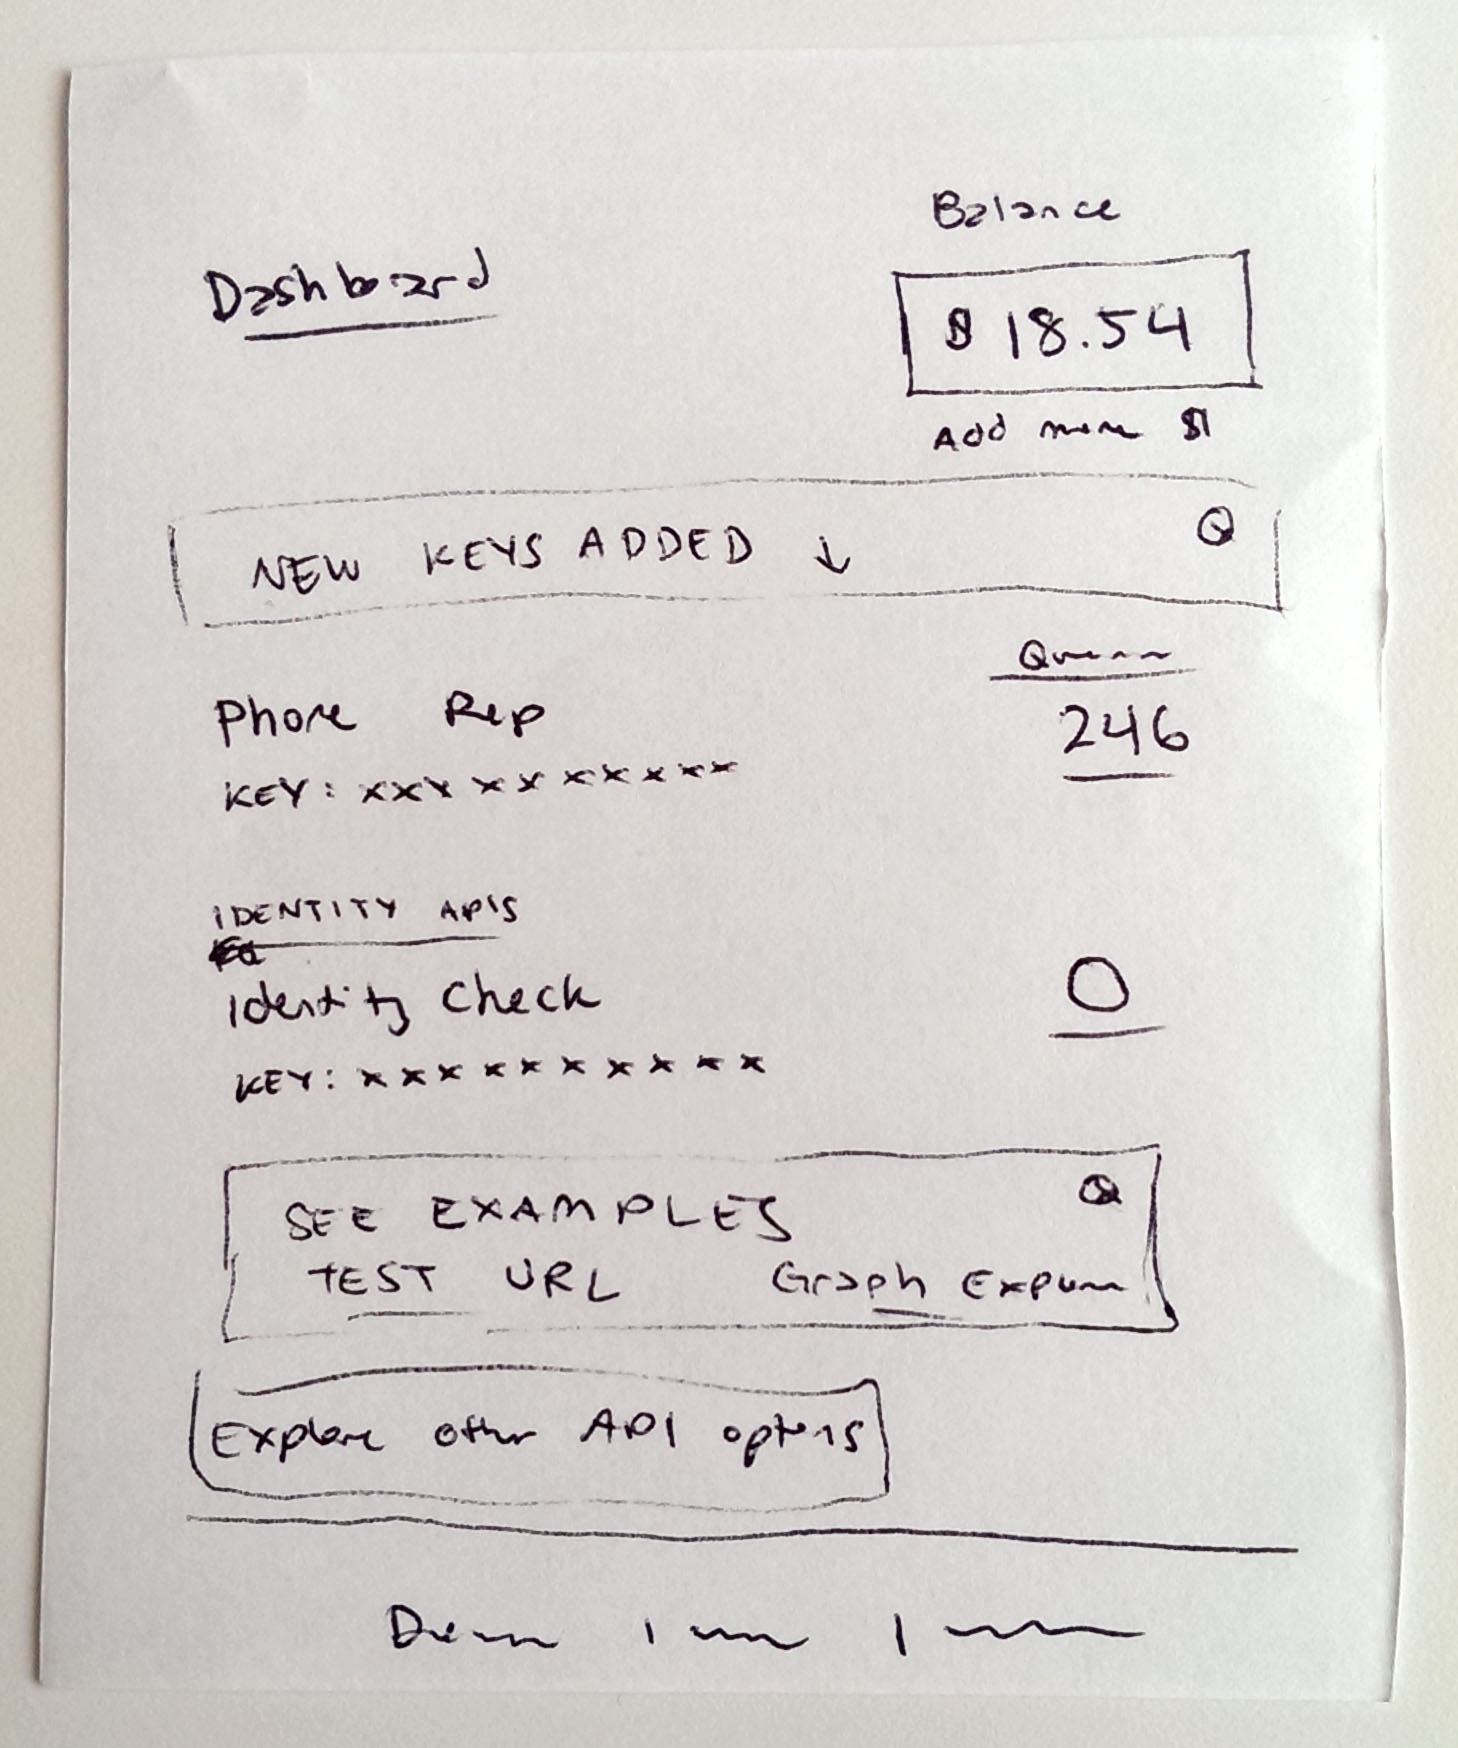 Balance
Dashboard
$ 18.54
Add more $
NEW KEYS ADDED ↓
Phone Rep
246
KEY: xxxxxxxxxx
IDENTITY APIS
Identity Check
0
KEY: xxxxxxxxxx
SEE EXAMPLES
TEST URL Graph
Explore other API options